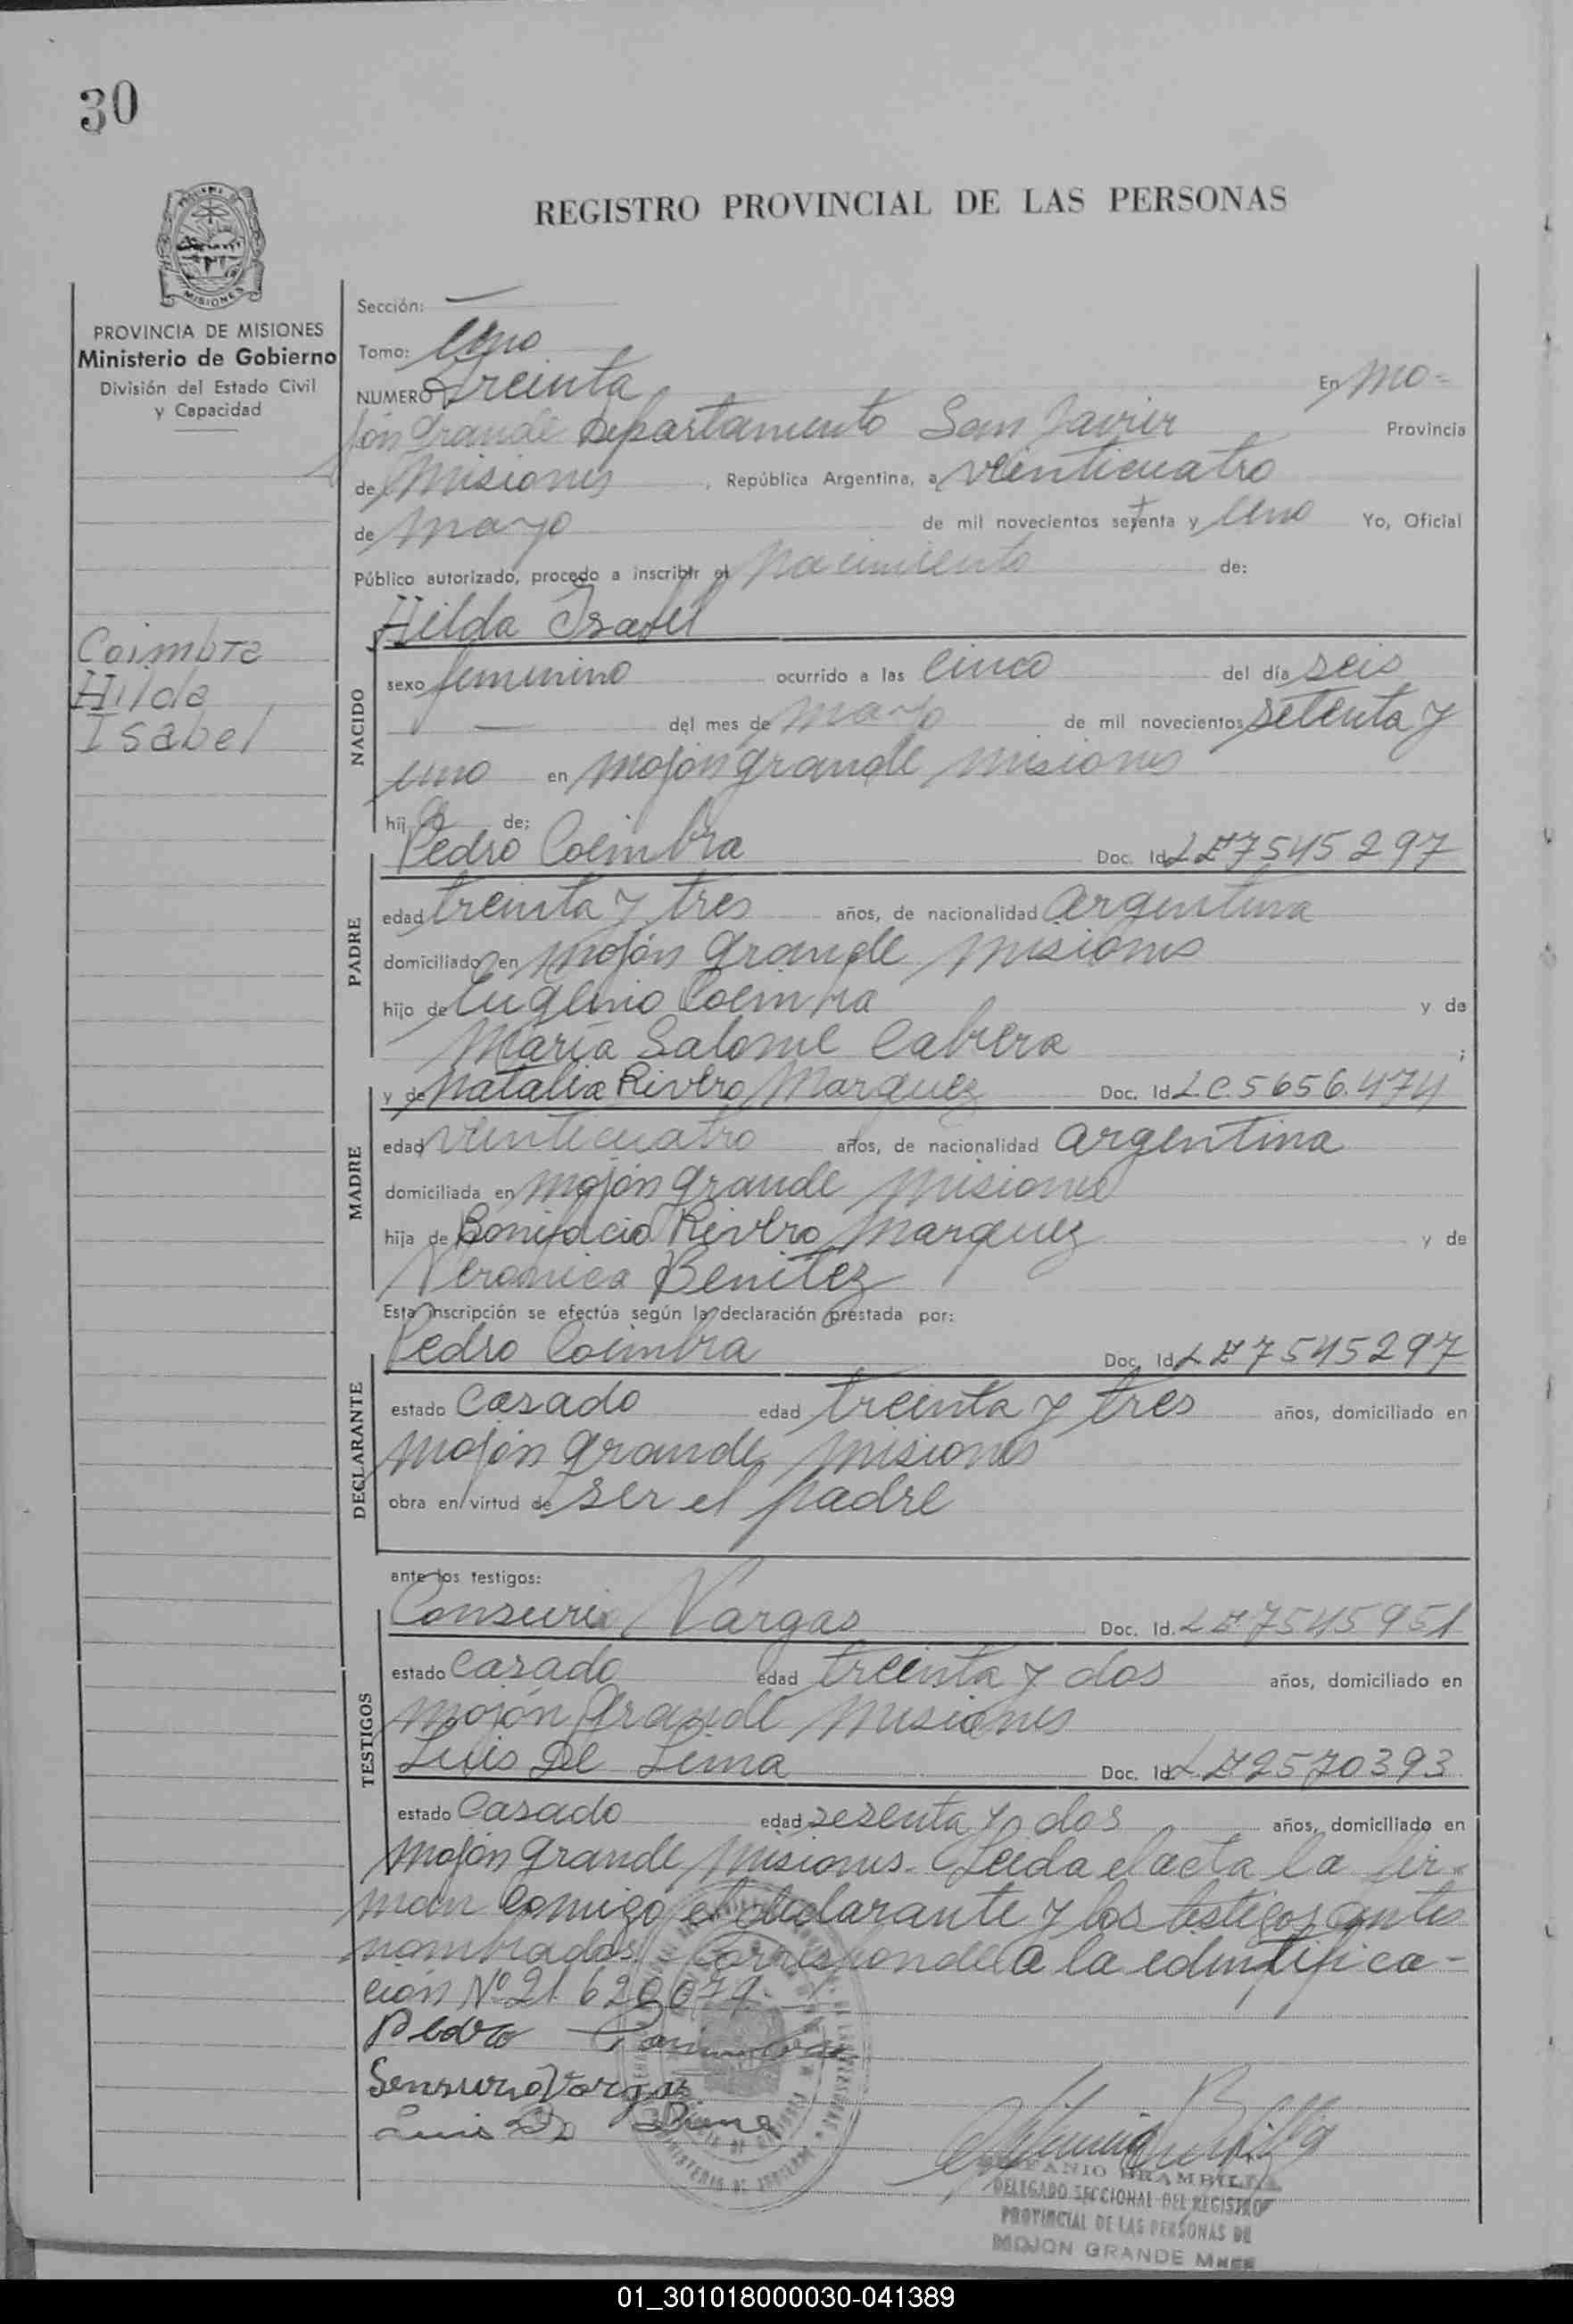 30
MISIONES
REGISTRO PROVINCIAL DE LAS PERSONAS
PROVINCIA DE MISIONES
Ministerio de Gobierno
División del Estado Civil
y Capacidad
Coimbra
Hilda
Isabel
Sección: —
Tomo: Uno
NUMERO Treinta En Mo-
jón Grande Departamento San Javier Provincia
de Misiones, República Argentina, a veinticuatro
de mayo de mil novecientos setenta y Uno Yo, Oficial
Público autorizado, procedo a inscribir el Nacimiento de:
Hilda Isabel
NACIDO
sexo femenino ocurrido a las cinco del día seis
— del mes de mayo de mil novecientos setenta y
uno en Mojón grande Misiones
hij a de:
PADRE
Pedro Coimbra Doc. Id. LE 7545297
edad treinta y tres años, de nacionalidad argentina
domiciliado en Mojón Grande Misiones
hijo de Eugenio Coimbra y de
María Salome Cabrera ;
MADRE
y de Natalia Rivero Marquez Doc. Id. L.C. 5656.474
edad veinticuatro años, de nacionalidad argentina
domiciliada en Mojón grande Misiones
hija de Bonifacio Rivero Marquez y de
Veronica Benitez
Esta inscripción se efectúa según la declaración prestada por:
DECLARANTE
Pedro Coimbra Doc. Id. LE 7545297
estado Casado edad treinta y tres años, domiciliado en
Mojón grande Misiones
obra en virtud de ser el padre
ante los testigos:
TESTIGOS
Vargas Doc. Id. LE 7545951
estado Casado edad treinta y dos años, domiciliado en
Mojón Grande Misiones
Luis De Lima Doc. Id. LE 2570393
estado Casado edad sesenta y dos años, domiciliado en
Mojón Grande Misiones. Leida el acta la fir-
man comigo el declarante y los testigos antes
nombrados. Corresponde a la edentifica-
ción Nº 21 620079.
Pedro Coimbra
Vargas
Luis De Lima
BRAMBILLA
DELEGADO SECCIONAL DEL REGISTRO
PROVINCIAL DE LAS PERSONAS DE
MOJON GRANDE Mnes
01_301018000030-041389